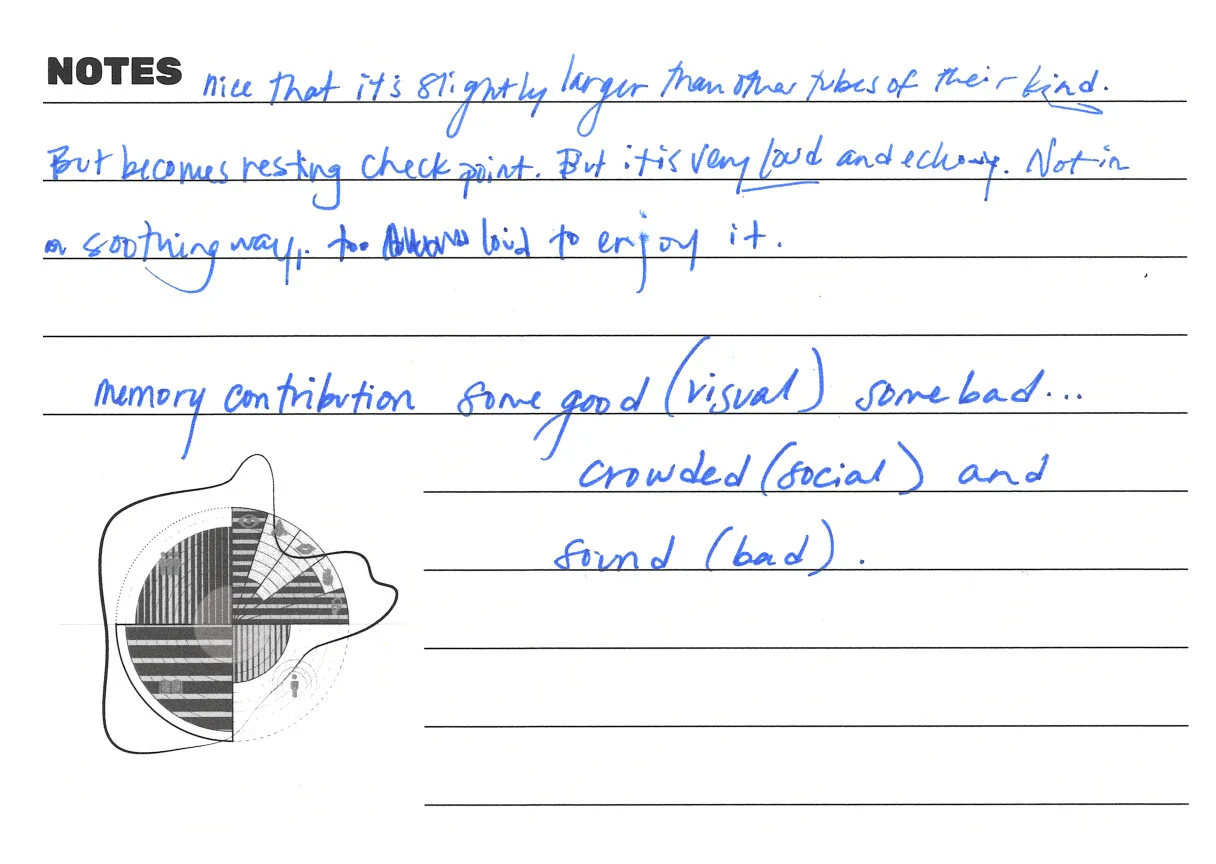 NOTES nice that it's slightly larger than other tubes of their kind.
But becomes resting check point. But it is very loud and echoey. Not in
a soothing way, too loud to enjoy it.
memory contribution some good (visual) some bad...
crowded (social) and
sound (bad).